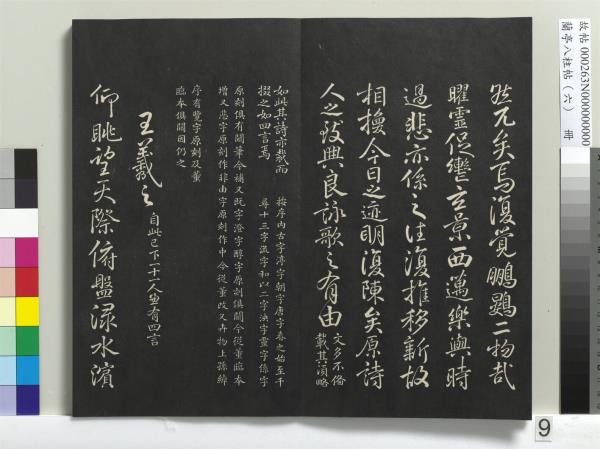 故帖 000263N000000000
蘭亭八柱帖（六） 冊
然兀矣焉復覺鵬鷃二物哉
曜靈促轡玄景西邁樂與時
過悲亦係之往復推移新故
相換今日之迹明復陳矣原詩
人之致興良詠歌之有由
文多不俻
載其湏略
如此其詩亦裁而
掇之如四言焉
按序內古字渟字朝字唐字春之始至千
尋十三字流字和以二字泱字靈字係字
原刻俱有闕筆今補又既字澄字醇字原刻俱闕今從董臨本
增又悲字原刻作非由字原刻作中今從董改又卉物上孫綽
序有覽字原刻及董
臨本俱闕因仍之
王羲之 自此已下二十一人並有四言
仰眺望天際俯盤淥水濱
9